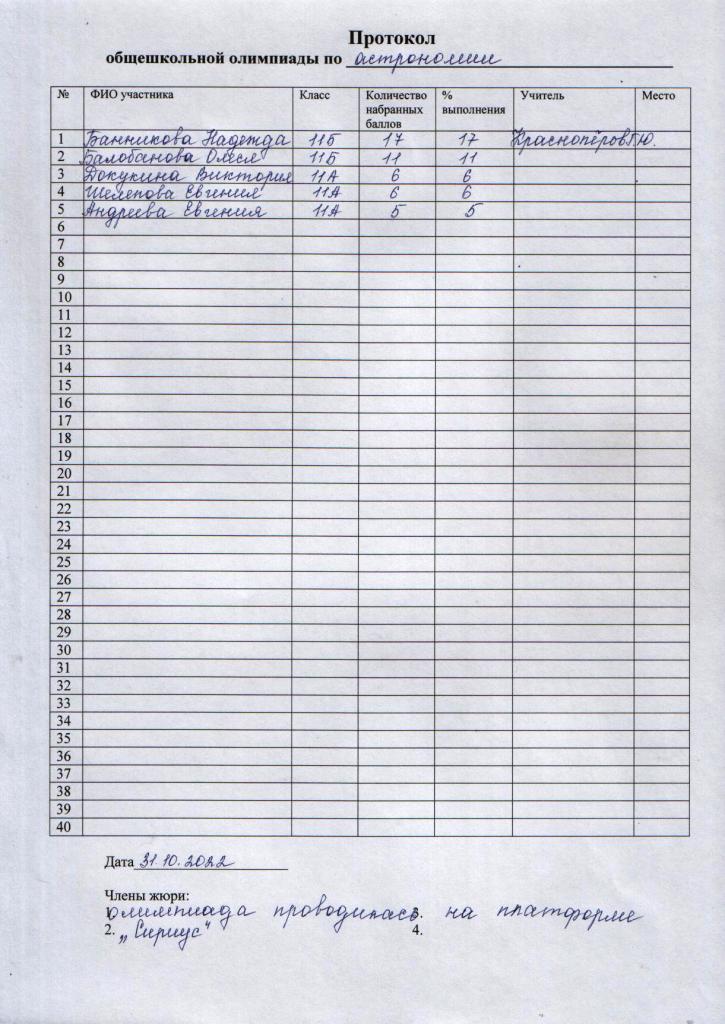 Протокол
общешкольной олимпиады по астрономии
№ ФИО участника Класс Количество набранных баллов % выполнения Учитель Место
1 Банникова Надежда 11Б 17 17 Краснопёров Г.Ю.
2 Балобанова Олеся 11Б 11 11
3 Докукина Виктория 11А 6 6
4 Шелепова Евгения 11А 6 6
5 Андреева Евгения 11А 5 5
6
7
8
9
10
11
12
13
14
15
16
17
18
19
20
21
22
23
24
25
26
27
28
29
30
31
32
33
34
35
36
37
38
39
40
Дата 31.10.2022
Члены жюри:
1. олимпиада проводилась 3. на платформе
2. „Сириус" 4.